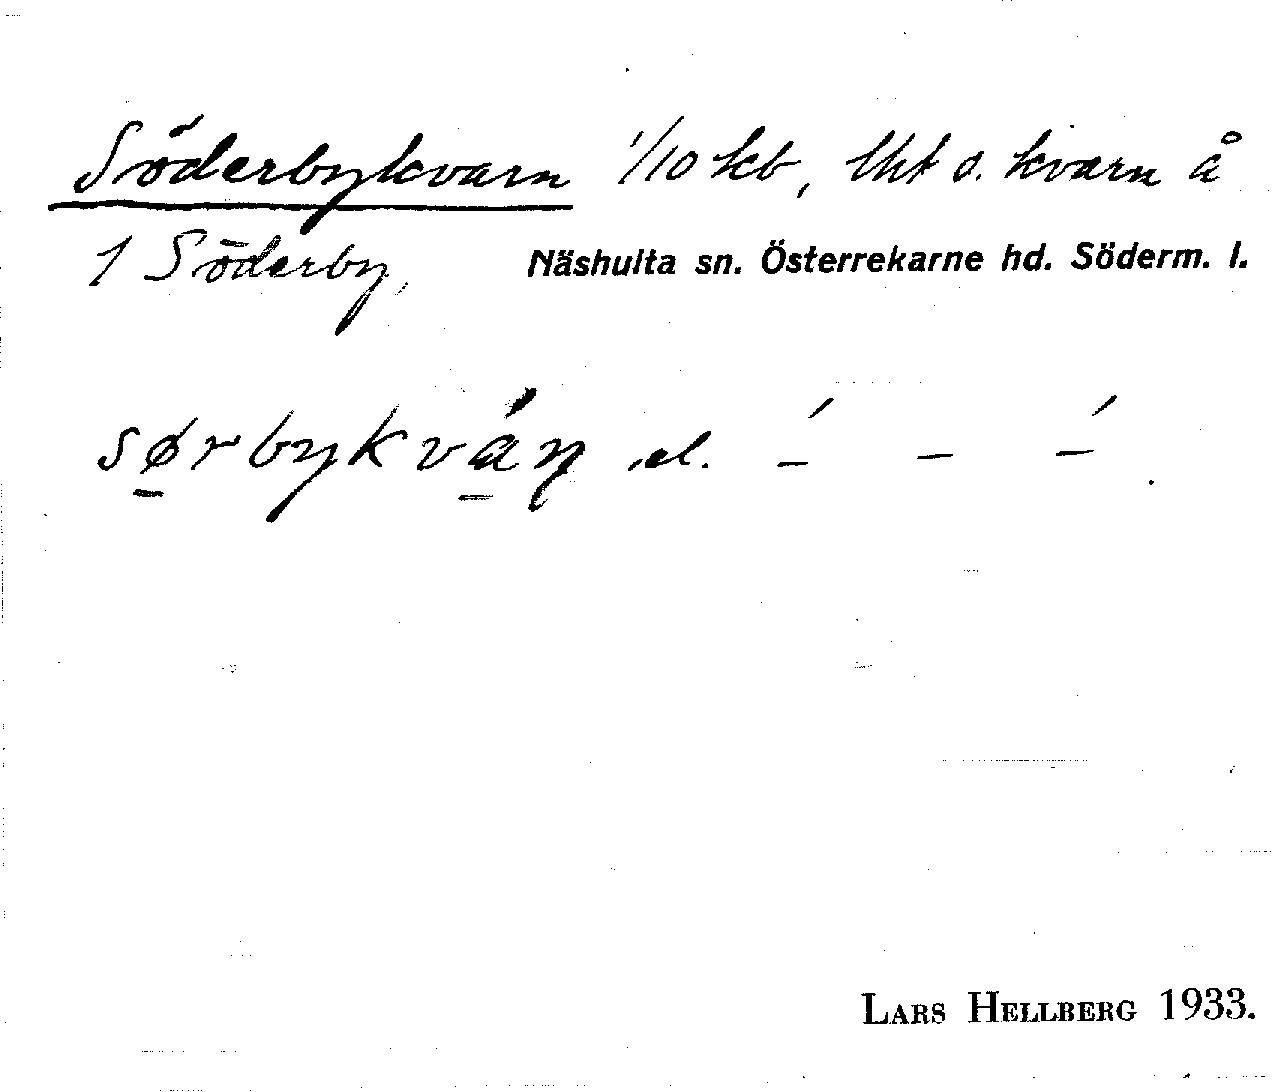 Söderbykvarn 1/10 kb, lht o. kvarn å
1 Söderby, Näshulta sn. Österrekarne hd. Söderm. l.
sø̱rbykvá̱ṇ el. –́ – –́ .
LARS HELLBERG 1933.